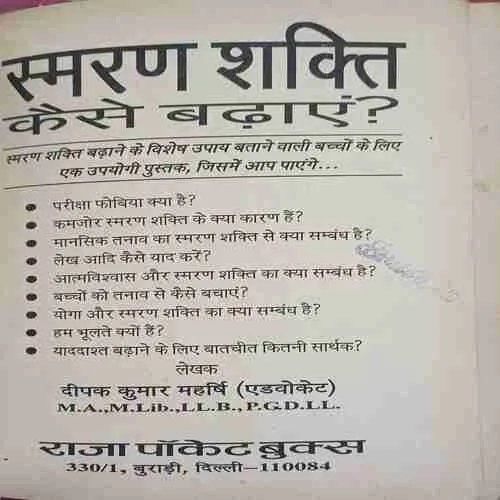 स्मरण शक्ति
कैसे बढ़ाएं?
स्मरण शक्ति बढ़ाने के विशेष उपाय बताने वाली बच्चों के लिए
एक उपयोगी पुस्तक, जिसमें आप पाएंगे...
● परीक्षा फोबिया क्या है?
● कमजोर स्मरण शक्ति के क्या कारण हैं?
● मानसिक तनाव का स्मरण शक्ति से क्या सम्बंध है?
● लेख आदि कैसे याद करें?
● आत्मविश्वास और स्मरण शक्ति का क्या सम्बंध है?
● बच्चों को तनाव से कैसे बचाएं?
● योगा और स्मरण शक्ति का क्या सम्बंध है?
● हम भूलते क्यों हैं?
● याददाश्त बढ़ाने के लिए बातचीत कितनी सार्थक?
लेखक
दीपक कुमार महर्षि (एडवोकेट)
M.A.,M.Lib.,LL.B.,P.G.D.LL.
राजा पॉकेट बुक्स
330/1, बुराड़ी, दिल्ली–110084